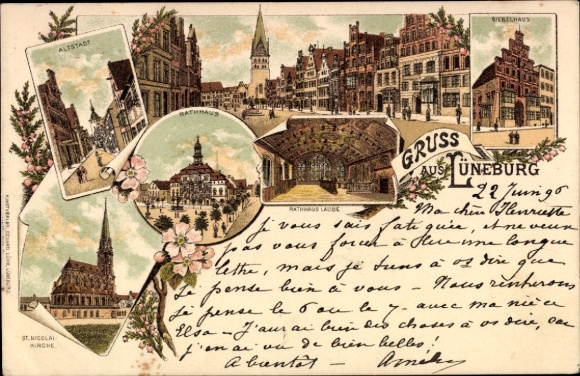 ALTSTADT
GIEBELHAUS
RATHHAUS
RATHHAUS LAUBE
GRUSS
AUS LÜNEBURG
ST. NICOLAI-
KIRCHE
22 Juin 96
Ma chère Henriette
Je vous sais fatiguée, et ne veux
pas vous forcer à lire une longue
lettre, mais je tiens à vs dire que
Je pense bien à vous - Nous rentrerons
je pense le 6 ou le 7 - avec ma nièce
Elsa - J'aurai bien des choses à vs dire, car
j'en ai vu de bien belles!
A bientôt - Amélie